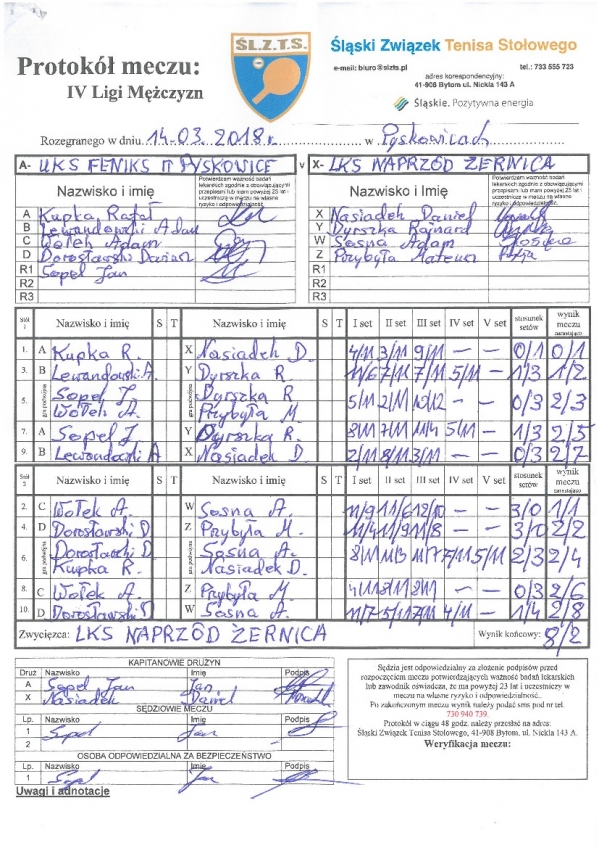 ŚL.Z.T.S.
Śląski Związek Tenisa Stołowego
e-mail: biuro@slzts.pl tel.: 733 555 723
adres korespondencyjny:
41-908 Bytom ul. Nickla 143 A
Śląskie. Pozytywna energia
Protokół meczu:
IV Ligi Mężczyzn
Rozegranego w dniu 14.03.2018r. w Pyskowicach
A- UKS FENIKS II PYSKOWICE v X- LKS NAPRZÓD ŻERNICA
Nazwisko i imię Potwierdzam ważność badań lekarskich zgodnie z obowiązującymi przepisami lub mam powyżej 23 lat i uczestniczę w meczu na własne ryzyko i odpowiedzialność. Nazwisko i imię Potwierdzam ważność badań lekarskich zgodnie z obowiązującymi przepisami lub mam powyżej 23 lat i uczestniczę w meczu na własne ryzyko i odpowiedzialność.
A Kupka, Rafał X Nasiadek Daniel
B Lewandowski Adam Y Dyrszka Rajnard
C Wołek Adam W Sosna Adam
D Dorosławski Damian Z Przybyła Mateusz
R1 Sopel Jan R1
R2 R2
R3 R3
Stół 1 Nazwisko i imię S T Nazwisko i imię S T I set II set III set IV set V set stosunek setów wynik meczu narastająco
1. A Kupka R. X Nasiadek D. 4/11 3/11 9/11 - - 0/1 0/1
3. B Lewandowski A. Y Dyrszka R. 11/6 7/11 7/11 5/11 - 1/3 1/2
5. gra podwójna Sopel J. Dyrszka R
Wołek A. Przybyła M. 5/11 2/11 10/12 - - 0/3 2/3
7. A Sopel J. Y Dyrszka R. 8/11 7/11 11/4 5/11 - 1/3 2/5
9. B Lewandowski A X Nasiadek D. 2/11 8/11 3/11 - - 0/3 2/7
Stół 2 Nazwisko i imię S T Nazwisko i imię S T I set II set III set IV set V set stosunek setów wynik meczu narastająco
2. C Wołek A. W Sosna A. 11/9 11/6 12/10 - - 3/0 1/1
4. D Dorosławski D. Z Przybyła M. 11/4 11/9 11/8 - - 3/0 2/2
6. gra podwójna Dorosławski D Sosna A.
Kupka R. Nasiadek D. 8/11 11/3 11/7 7/11 5/11 2/3 2/4
8. C Wołek A. Z Przybyła M. 4/11 8/11 8/11 - - 0/3 2/6
10. D Dorosławski D. W Sosna A. 11/7 5/11 7/11 4/11 - 1/4 2/8
Zwycięzca: LKS NAPRZÓD ŻERNICA Wynik końcowy: 8/2
KAPITANOWIE DRUŻYN
Druż Nazwisko Imię Podpis
A Sopel Jan Jan
X Nasiadek Daniel
SĘDZIOWIE MECZU
Lp. Nazwisko Imię Podpis
1 Sopel Jan
2
OSOBA ODPOWIEDZIALNA ZA BEZPIECZEŃSTWO
Lp. Nazwisko Imię Podpis
1 Sopel Jan
Uwagi i adnotacje
Sędzia jest odpowiedzialny za złożenie podpisów przed
rozpoczęciem meczu potwierdzających ważność badań lekarskich
lub zawodnik oświadcza, że ma powyżej 23 lat i uczestniczy w
meczu na własne ryzyko i odpowiedzialność.
Po zakończonym meczu wynik należy podać sms pod nr tel.
730 940 739.
Protokół w ciągu 48 godz. należy przesłać na adres:
Śląski Związek Tenisa Stołowego, 41-908 Bytom, ul. Nickla 143 A.
Weryfikacja meczu: